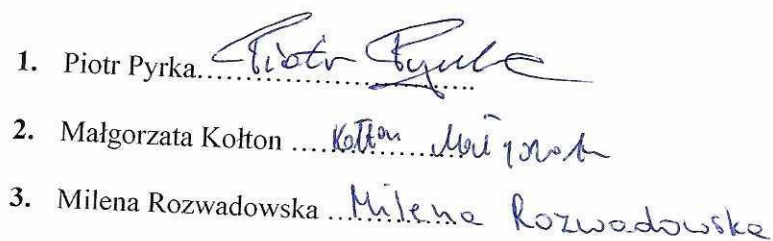 1. Piotr Pyrka.................................... Piotr Pyrka
2. Małgorzata Kołton .................... Kołton Małgorzata
3. Milena Rozwadowska .................... Milena Rozwadowska